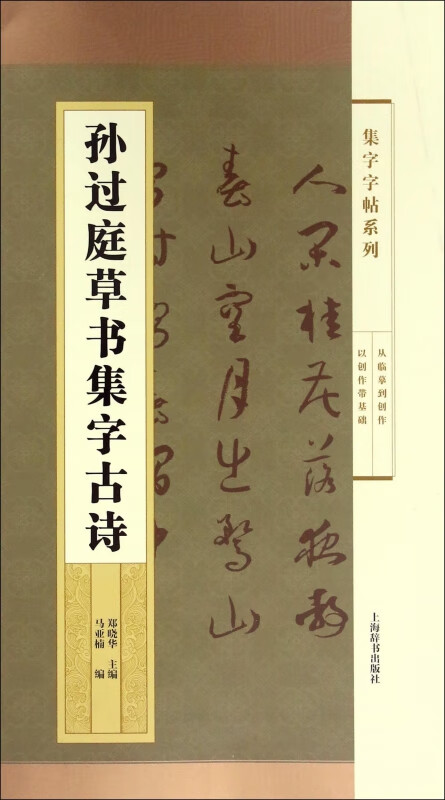 孙过庭草书集字古诗
郑晓华 主编
马亚楠 编
人閑桂花落夜靜
春山空月出驚山
集字字帖系列
从临摹到创作
以创作带基础
上海辞书出版社